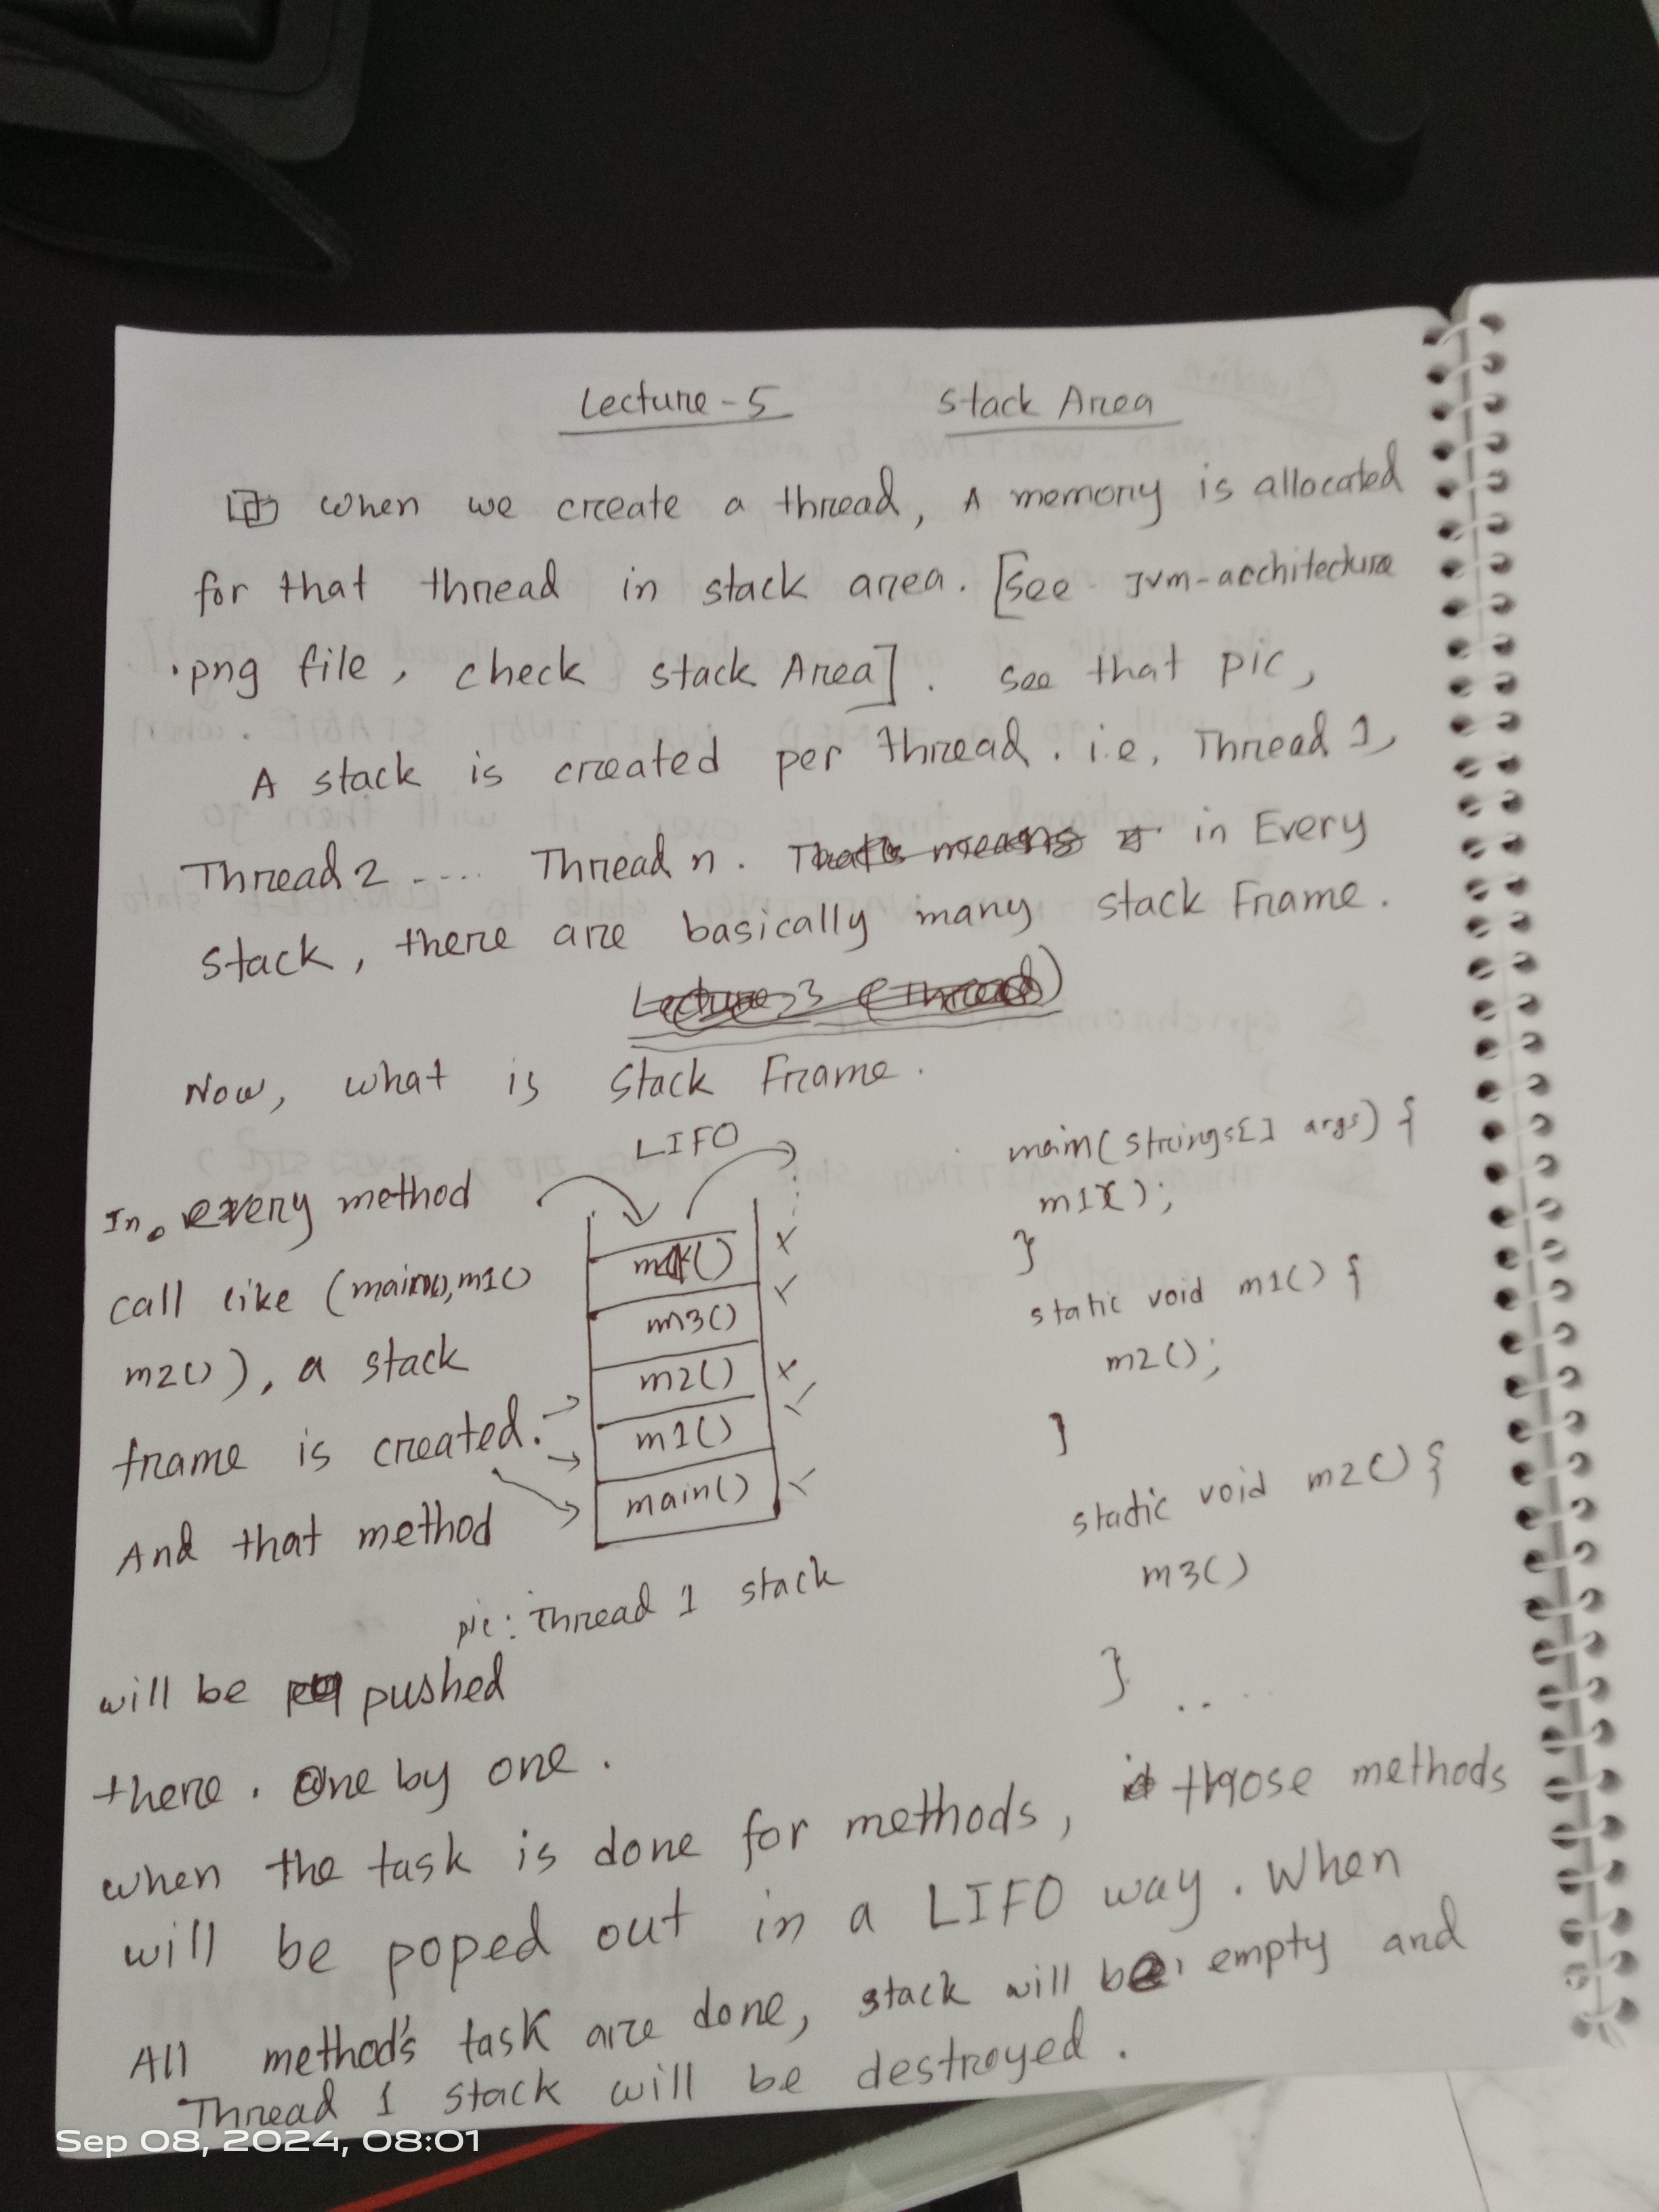 Lecture-5 Stack Area
when we create a thread, A memory is allocated
for that thread in stack area. [See Jvm-architecture
.png file, check stack Area]. See that pic,
A stack is created per thread. i.e, Thread 1,
Thread 2 .... Thread n. in Every
stack, there are basically many stack Frame.
Now, what is Stack Frame.
LIFO
In every method
call like (main(), m1()
m2()), a stack
frame is created.
And that method
m3()
m2()
m1()
main()
pic: Thread 1 stack
main(strings[] args) {
m1();
}
static void m1() {
m2();
}
static void m2() {
m3()
} ....
will be pushed
there. One by one.
when the task is done for methods, those methods
will be poped out in a LIFO way. When
All method's task are done, stack will be empty and
Thread 1 stack will be destroyed.
Sep 08, 2024, 08:01